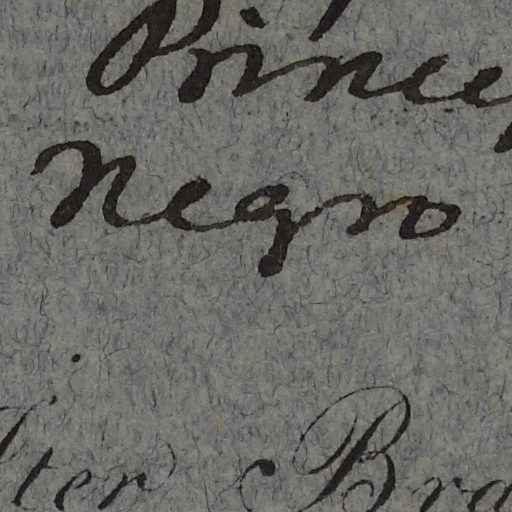 Prince
Negro
ter Bra